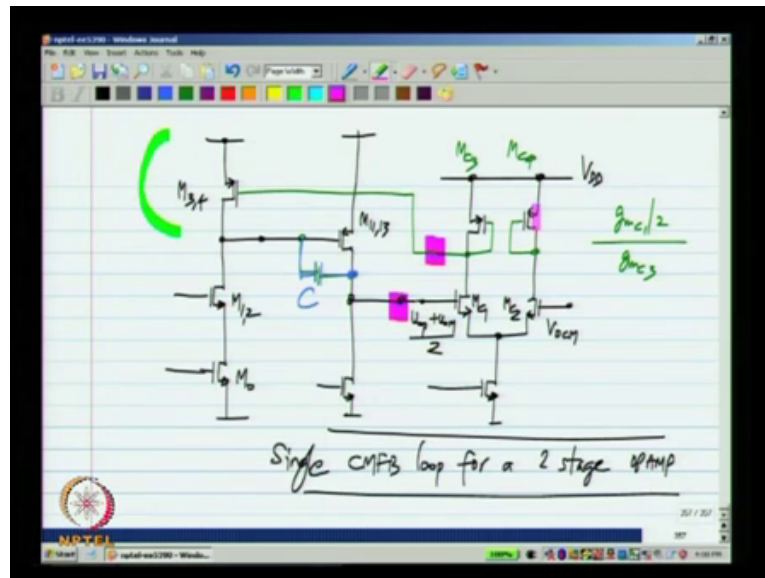 nptel-ee5390 - Windows Journal
File Edit View Insert Actions Tools Help
Page Width
B I
M3,4
M11,13
Mc3
Mc4
VDD
gmc1/2
gmc3
C
M1,2
Mc1
Mc2
VOCM
2
M0
Single CMFB loop for a 2 stage OPAMP
NPTEL
Start
nptel-ee5390 - Windo...
100%